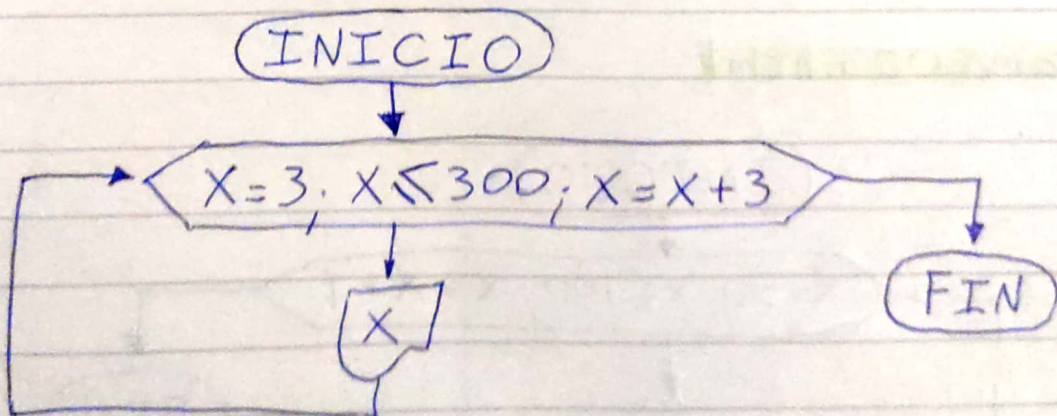 INICIO
X=3; X≤300; X=X+3
X
FIN